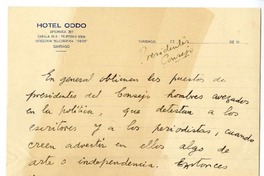 HOTEL ODDO
SANTIAGO
SANTIAGO,
DE 19
Presidentes
Consejo
En general obtienen los puestos de
presidentes del Consejo hombres avezados
en la política, que detestan a los
escritores y a los periodistas, cuando
creen advertir en ellos algo de
arte o independencia. Entonces